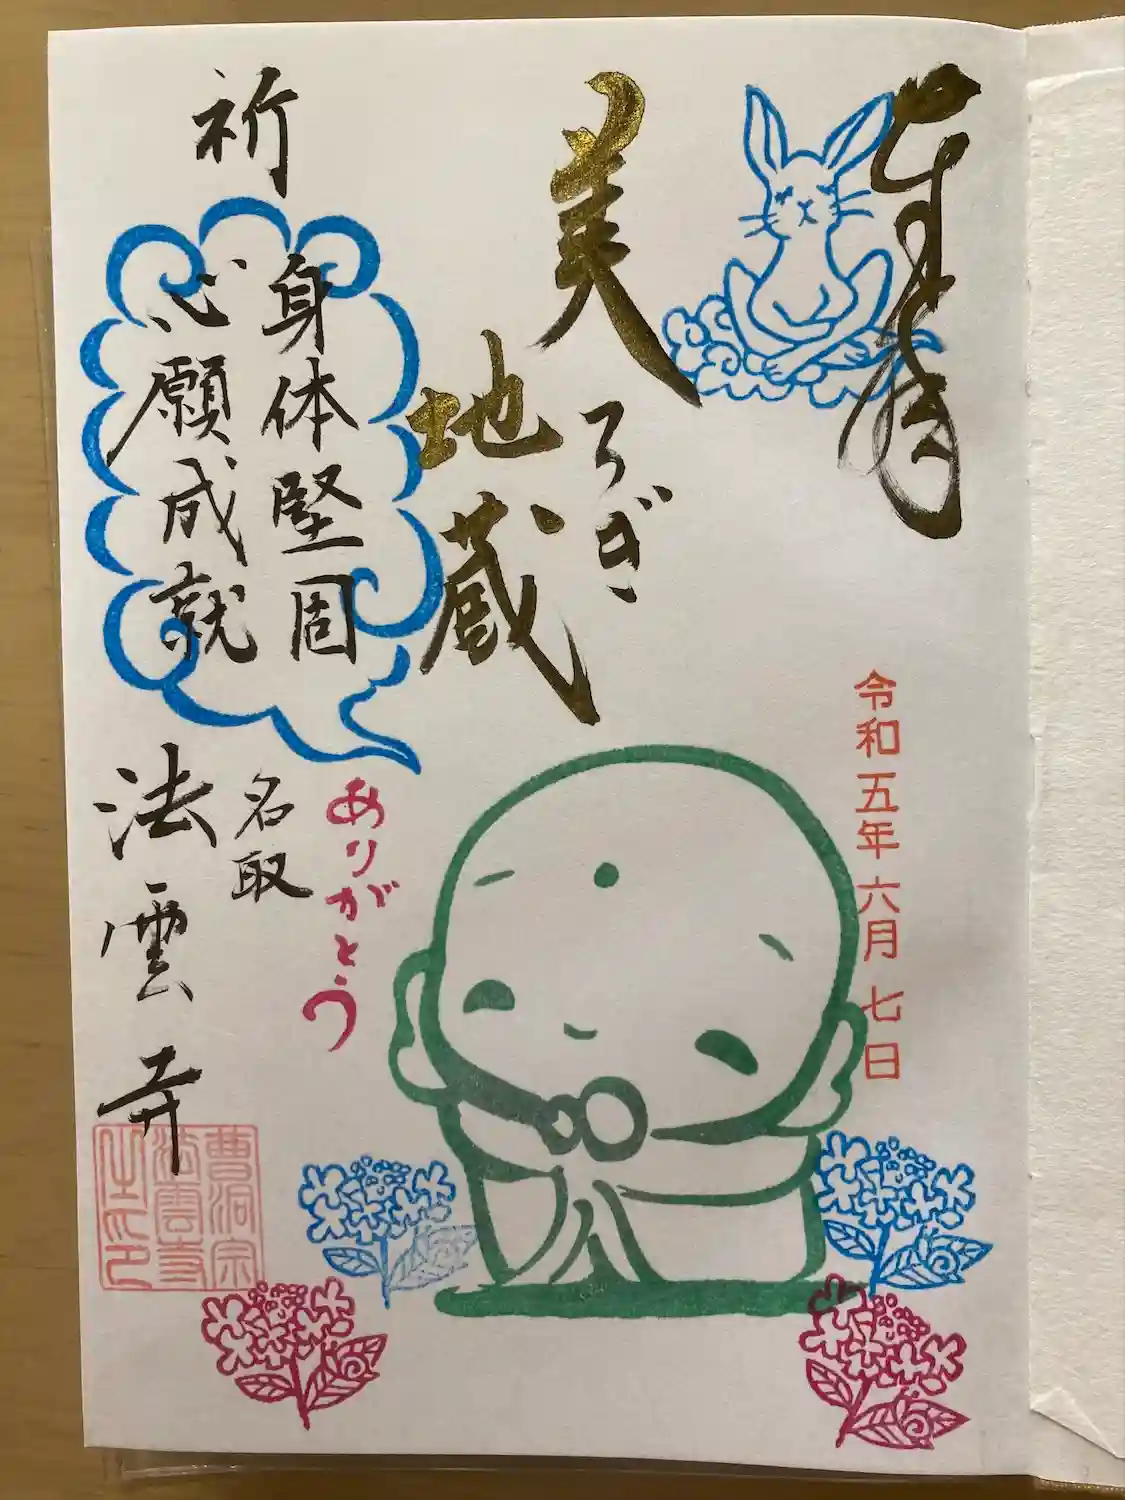 奉拝
令和五年六月七日
美
地蔵
祈
身体堅固
心願成就
ありがとう
名取
法雲寺
曹洞宗
法雲寺
之印